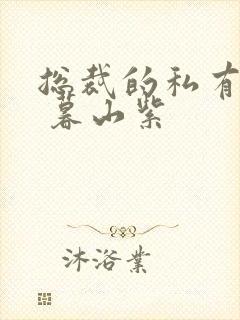 总裁的私有
暮山紫
沐浴業